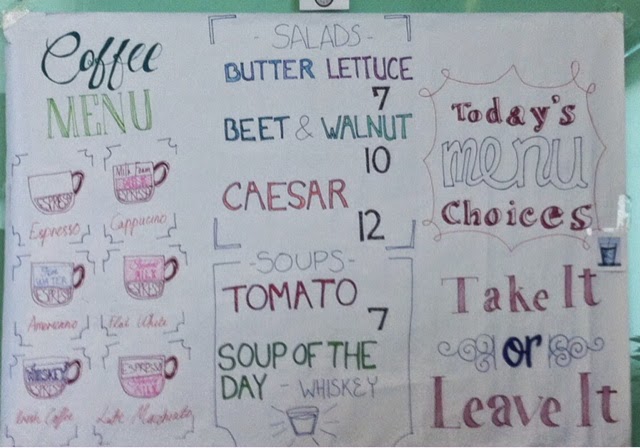 Coffee
MENU
Espresso
Cappucino
Milk Foam
ESPRESSO
Americano
WATER
Flat White
MILK
WHISKEY
Irish Coffee
ESPRESSO
Latte Macchiato
- SALADS -
BUTTER LETTUCE
7
BEET & WALNUT
10
CAESAR
12
-SOUPS-
TOMATO
7
SOUP OF THE
DAY - WHISKEY
Today's
menu
Choices
Take It
or
Leave It